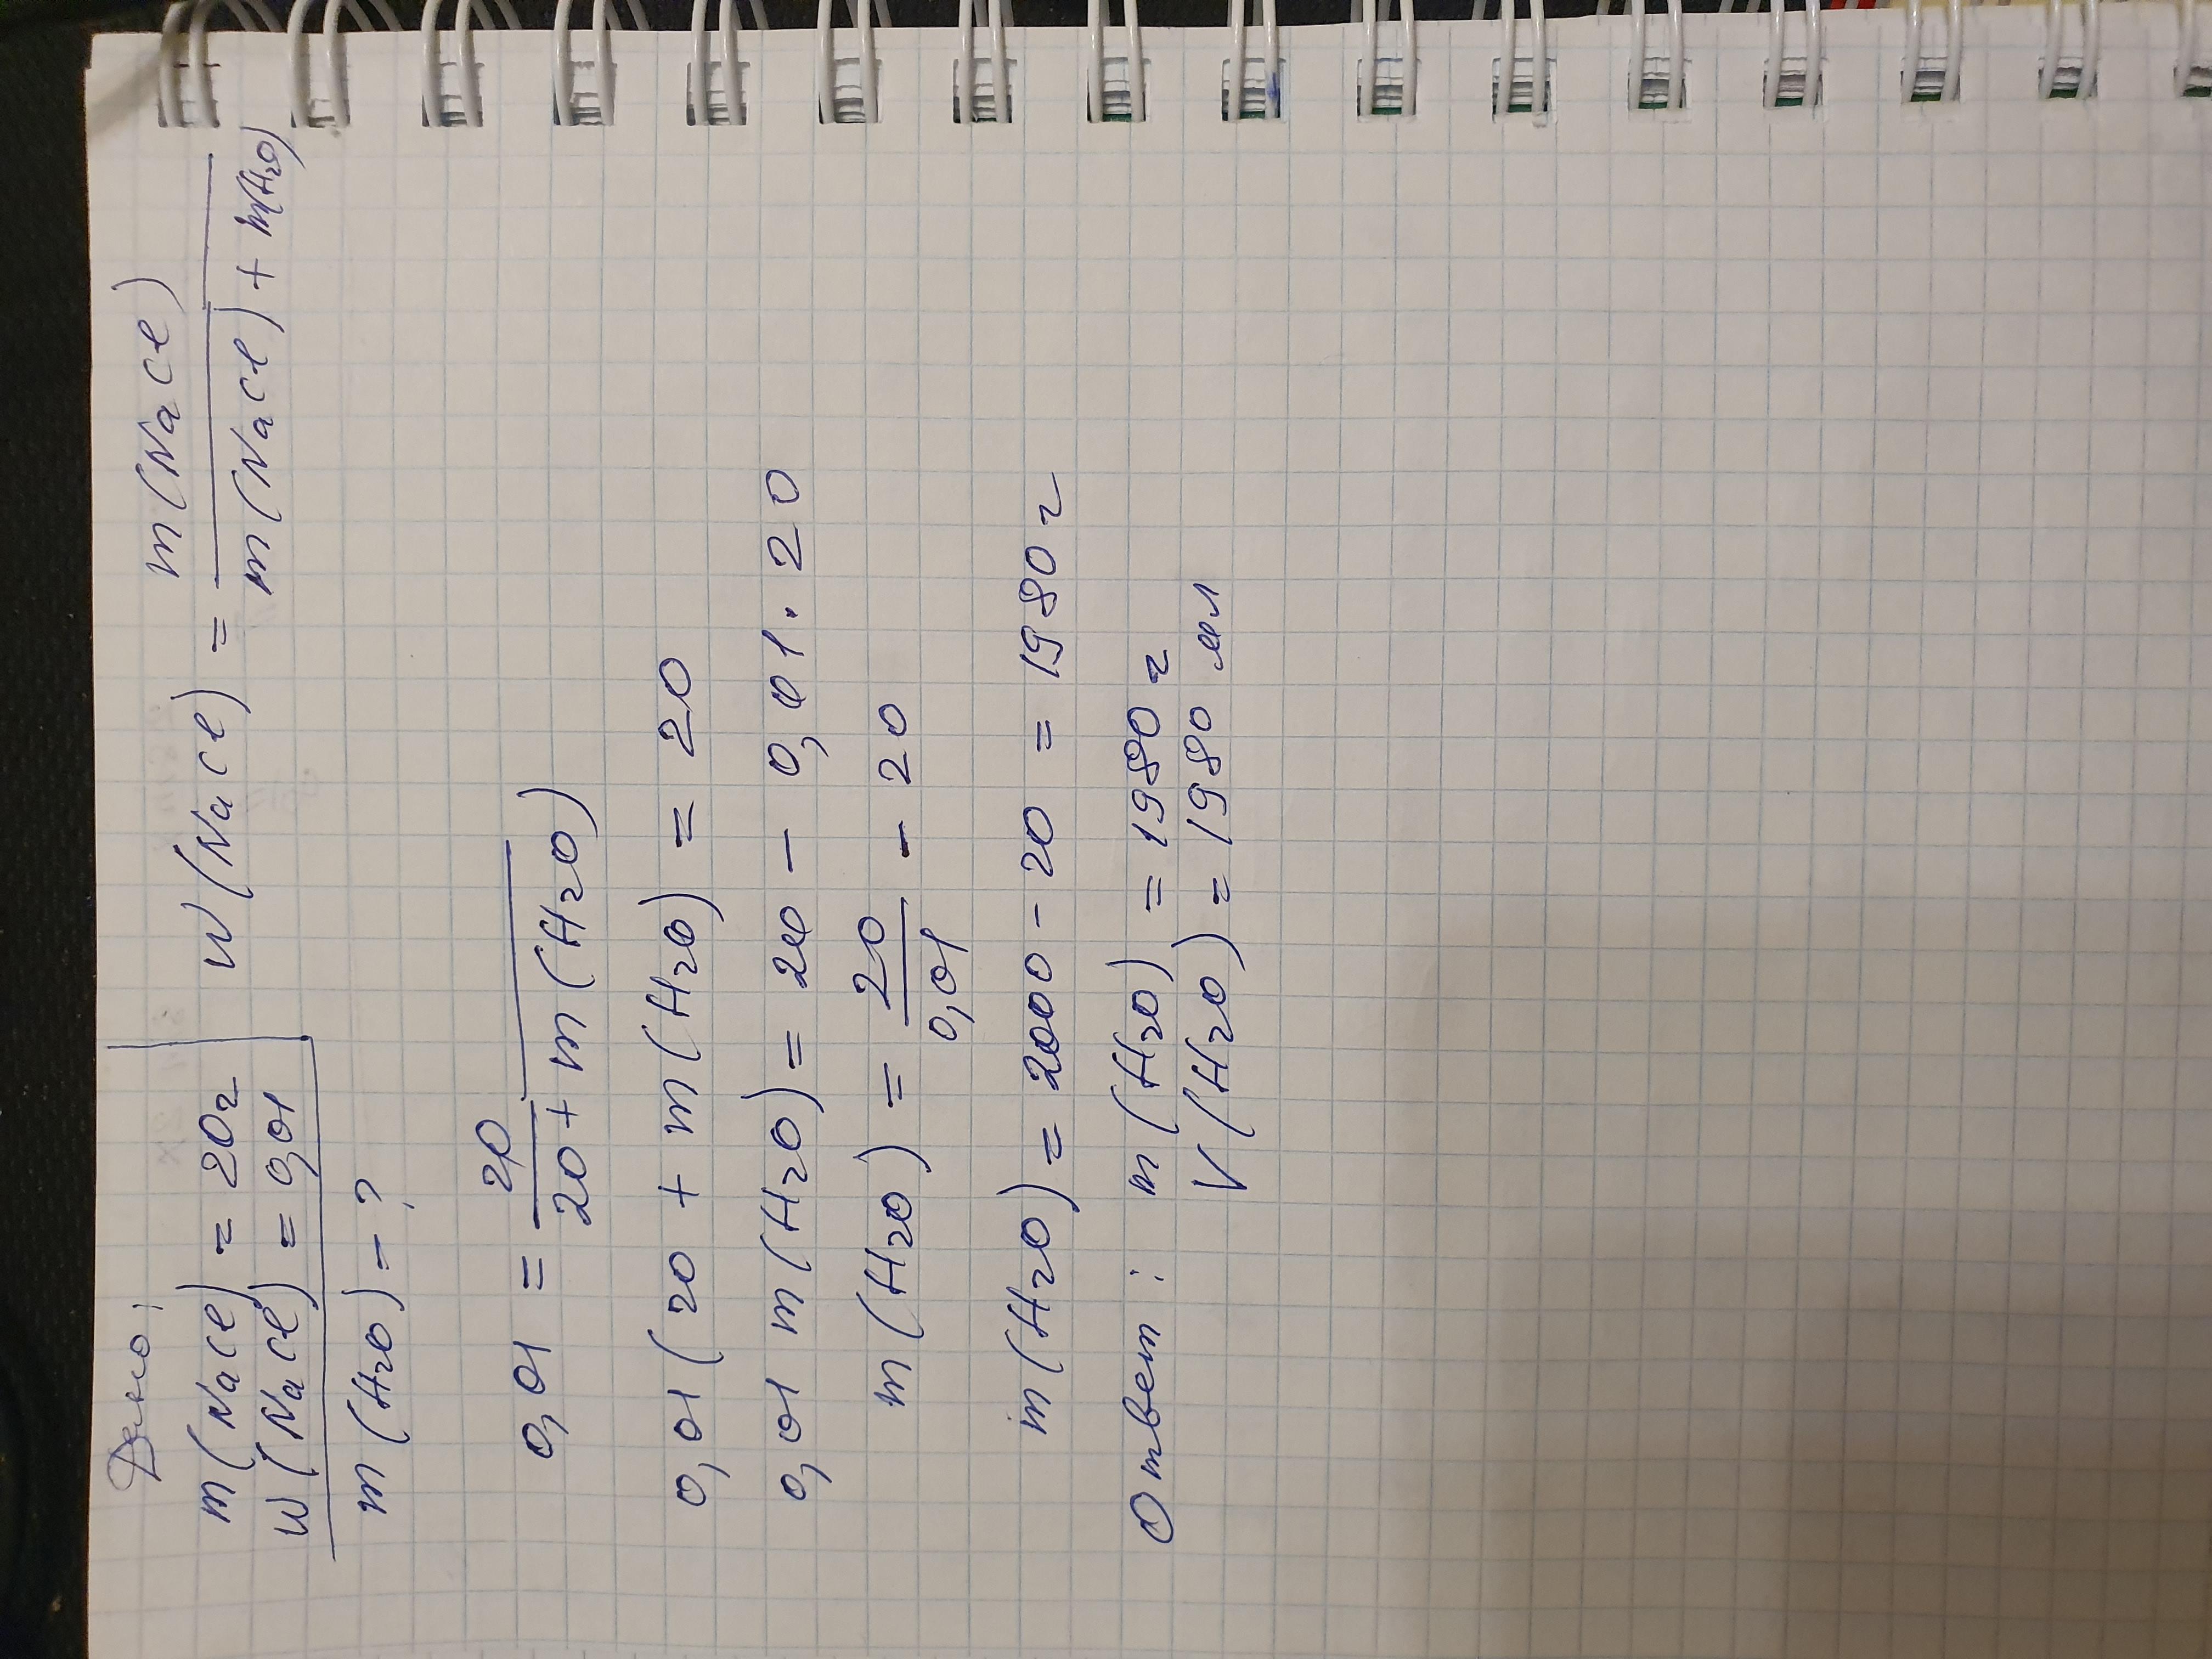 Дано:
m(NaCl) = 20г
w(NaCl) = 0,01
m(H₂O) - ?
w(NaCl) = m(NaCl) / m(NaCl) + m(H₂O)
0,01 = 20 / 20 + m(H₂O)
0,01 (20 + m(H₂O) = 20
0,01 m(H₂O) = 20 - 0,01 · 20
m(H₂O) = 20 / 0,01 - 20
m(H₂O) = 2000 - 20 = 1980 г
Ответ: m(H₂O) = 1980 г
V(H₂O) = 1980 мл